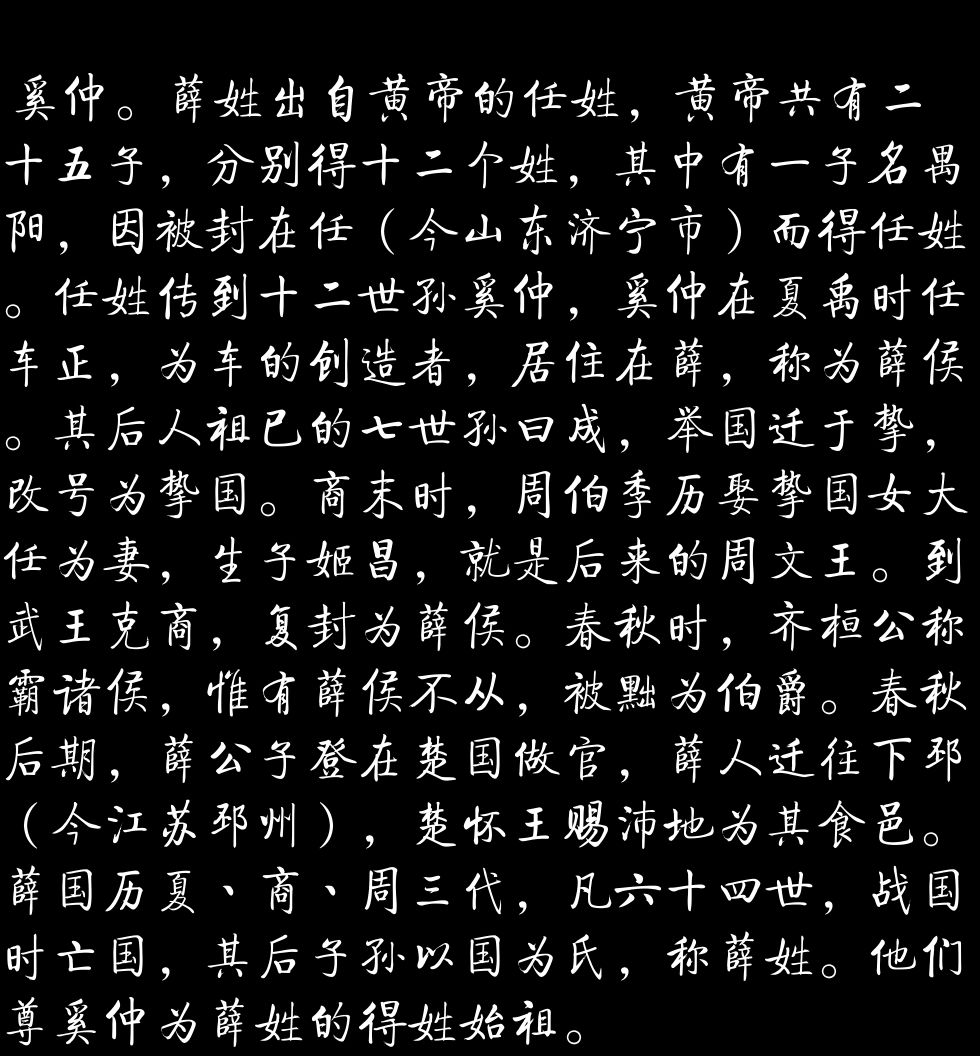 奚仲。薛姓出自黄帝的任姓，黄帝共有二
十五子，分别得十二个姓，其中有一子名禺
阳，因被封在任（今山东济宁市）而得任姓
。任姓传到十二世孙奚仲，奚仲在夏禹时任
车正，为车的创造者，居住在薛，称为薛侯
。其后人祖已的七世孙曰成，举国迁于挚，
改号为挚国。商末时，周伯季历娶挚国女大
任为妻，生子姬昌，就是后来的周文王。到
武王克商，复封为薛侯。春秋时，齐桓公称
霸诸侯，惟有薛侯不从，被黜为伯爵。春秋
后期，薛公子登在楚国做官，薛人迁往下邳
（今江苏邳州），楚怀王赐沛地为其食邑。
薛国历夏、商、周三代，凡六十四世，战国
时亡国，其后子孙以国为氏，称薛姓。他们
尊奚仲为薛姓的得姓始祖。